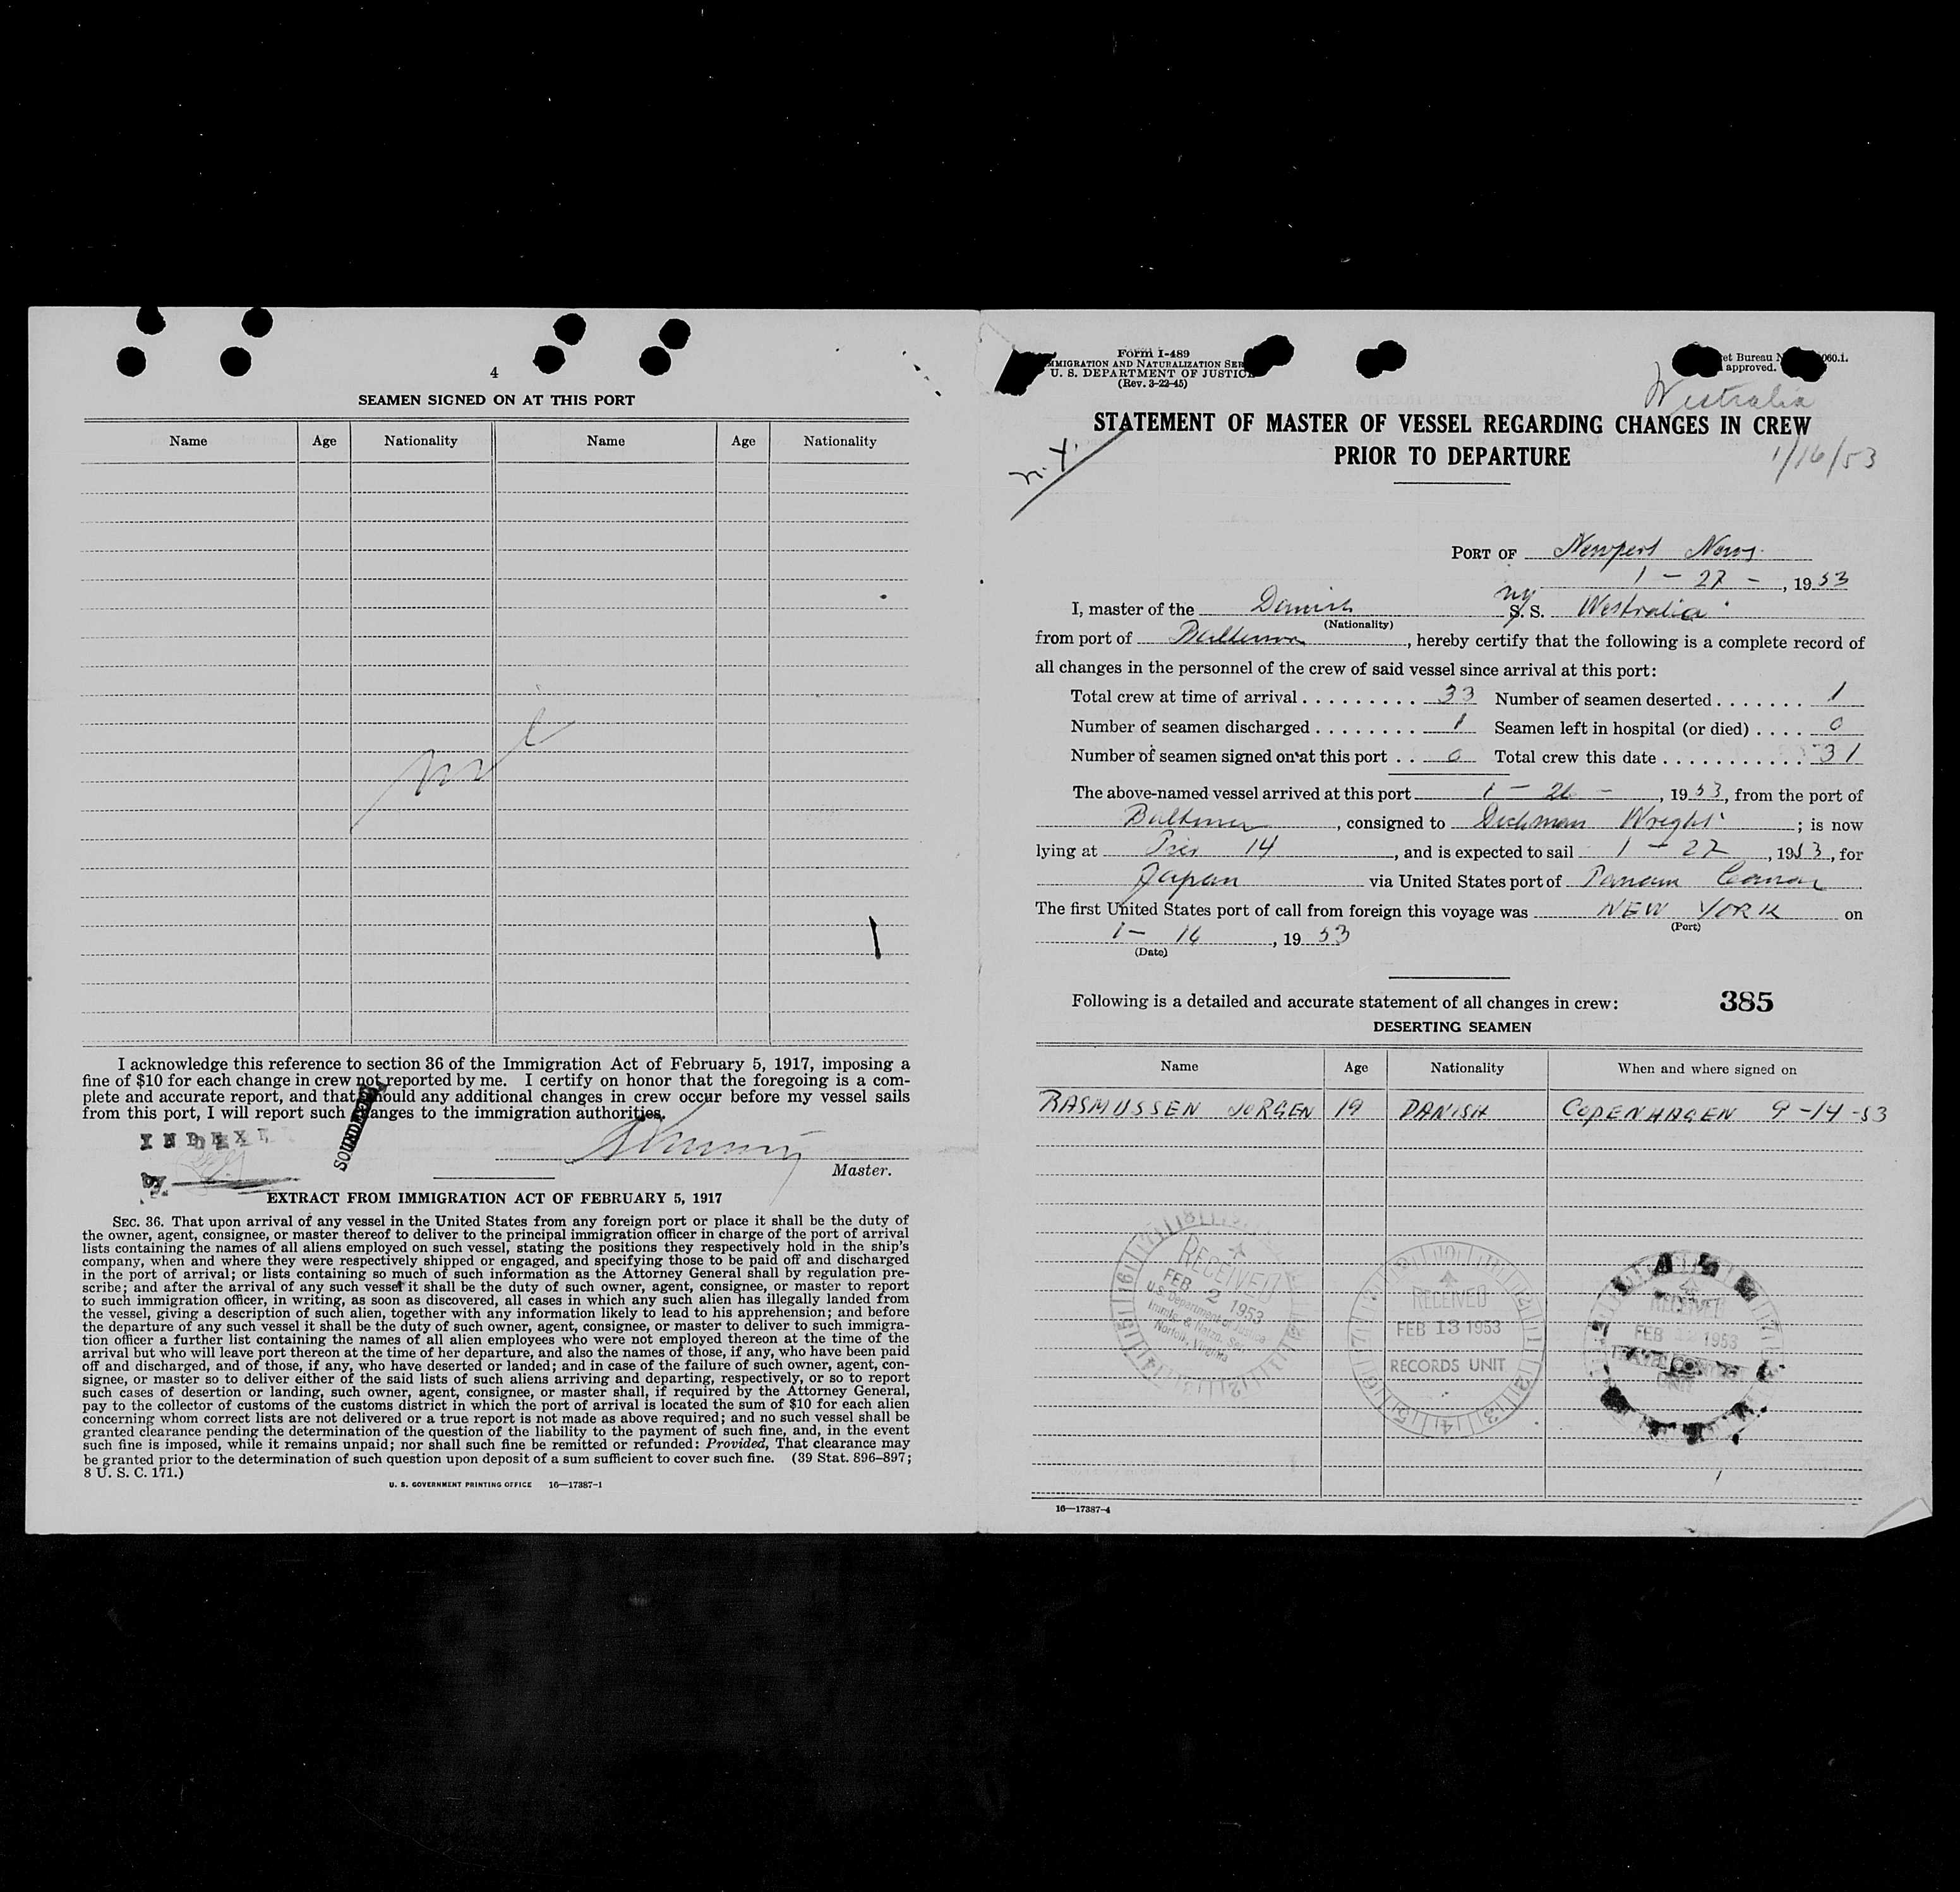 4
SEAMEN SIGNED ON AT THIS PORT
Name Age Nationality Name Age Nationality
nil
I acknowledge this reference to section 36 of the Immigration Act of February 5, 1917, imposing a
fine of $10 for each change in crew not reported by me. I certify on honor that the foregoing is a com-
plete and accurate report, and that should any additional changes in crew occur before my vessel sails
from this port, I will report such changes to the immigration authorities.
INDEXE
by
Master.
EXTRACT FROM IMMIGRATION ACT OF FEBRUARY 5, 1917
SEC. 36. That upon arrival of any vessel in the United States from any foreign port or place it shall be the duty of
the owner, agent, consignee, or master thereof to deliver to the principal immigration officer in charge of the port of arrival
lists containing the names of all aliens employed on such vessel, stating the positions they respectively hold in the ship's
company, when and where they were respectively shipped or engaged, and specifying those to be paid off and discharged
in the port of arrival; or lists containing so much of such information as the Attorney General shall by regulation pre-
scribe; and after the arrival of any such vessel it shall be the duty of such owner, agent, consignee, or master to report
to such immigration officer, in writing, as soon as discovered, all cases in which any such alien has illegally landed from
the vessel, giving a description of such alien, together with any information likely to lead to his apprehension; and before
the departure of any such vessel it shall be the duty of such owner, agent, consignee, or master to deliver to such immigra-
tion officer a further list containing the names of all alien employees who were not employed thereon at the time of the
arrival but who will leave port thereon at the time of her departure, and also the names of those, if any, who have been paid
off and discharged, and of those, if any, who have deserted or landed; and in case of the failure of such owner, agent, con-
signee, or master so to deliver either of the said lists of such aliens arriving and departing, respectively, or so to report
such cases of desertion or landing, such owner, agent, consignee, or master shall, if required by the Attorney General,
pay to the collector of customs of the customs district in which the port of arrival is located the sum of $10 for each alien
concerning whom correct lists are not delivered or a true report is not made as above required; and no such vessel shall be
granted clearance pending the determination of the question of the liability to the payment of such fine, and, in the event
such fine is imposed, while it remains unpaid; nor shall such fine be remitted or refunded: Provided, That clearance may
be granted prior to the determination of such question upon deposit of a sum sufficient to cover such fine. (39 Stat. 896–897;
8 U. S. C. 171.)
U. S. GOVERNMENT PRINTING OFFICE 16—17387-1
Form I-489
IMMIGRATION AND NATURALIZATION SER
U. S. DEPARTMENT OF JUSTICE
(Rev. 3-22-45)
et Bureau N 060.1.
approved.
Westralia
STATEMENT OF MASTER OF VESSEL REGARDING CHANGES IN CREW
PRIOR TO DEPARTURE
1/16/53
N.Y.
PORT OF Newport News
1 - 27 - , 1953
I, master of the Danish S. S. Westralia
(Nationality)
from port of Baltimore, hereby certify that the following is a complete record of
all changes in the personnel of the crew of said vessel since arrival at this port:
Total crew at time of arrival 33 Number of seamen deserted 1
Number of seamen discharged 1 Seamen left in hospital (or died) 0
Number of seamen signed on at this port 0 Total crew this date 31
The above-named vessel arrived at this port 1 - 26 - , 1953, from the port of
Baltimore, consigned to Dichman Wright; is now
lying at Pier 14, and is expected to sail 1 - 27, 1953, for
Japan via United States port of Panama Canal
The first United States port of call from foreign this voyage was NEW YORK on
(Port)
1 - 16, 1953
(Date)
Following is a detailed and accurate statement of all changes in crew: 385
DESERTING SEAMEN
Name Age Nationality When and where signed on
RASMUSSEN JORGEN 19 DANISH COPENHAGEN 9-14-53
RECEIVED
FEB 2 1953
U.S. Department of Justice
Immig. & Natzn. Ser.
Norfolk, Virginia
RECEIVED
FEB 13 1953
RECORDS UNIT
RECEIVED
FEB 1953
16—17387-4